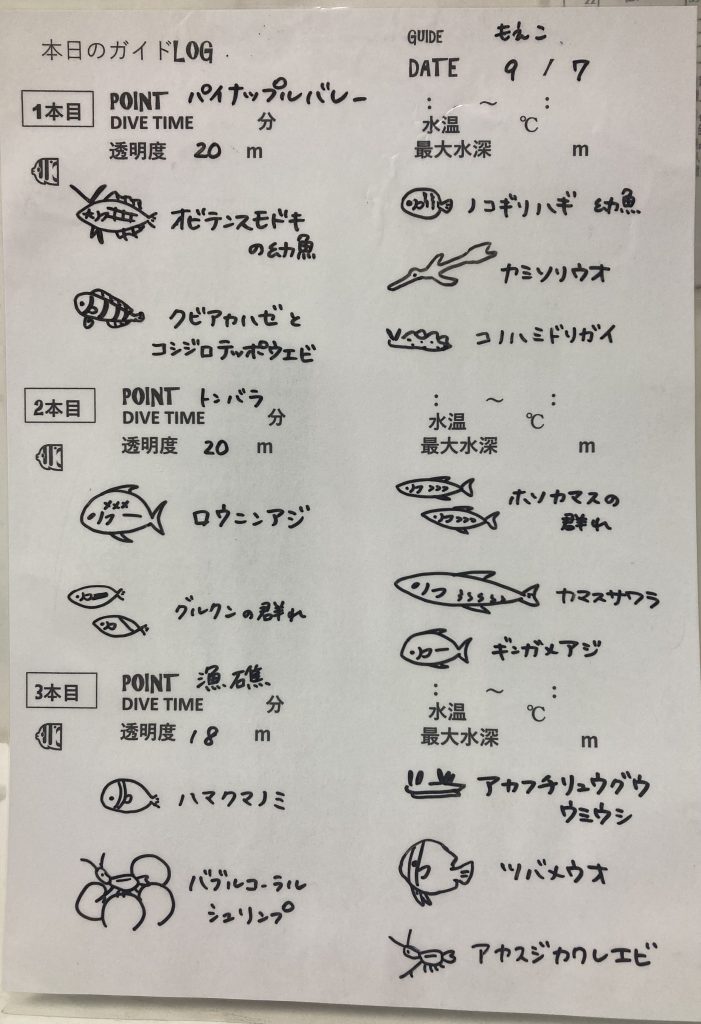 本日のガイドLOG
GUIDE もえこ
DATE 9 / 7
1本目
POINT パイナップルバレー
DIVE TIME 分
: ～ :
透明度 20 m
水温 ℃
最大水深 m
オビテンスモドキ
の幼魚
クビアカハゼと
コシジロテッポウエビ
ノコギリハギ 幼魚
カミソリウオ
コノハミドリガイ
2本目
POINT トンバラ
DIVE TIME 分
: ～ :
透明度 20 m
水温 ℃
最大水深 m
ロウニンアジ
グルクンの群れ
ホソカマスの
群れ
カマスサワラ
ギンガメアジ
3本目
POINT 漁礁
DIVE TIME 分
: ～ :
透明度 18 m
水温 ℃
最大水深 m
ハマクマノミ
バブルコーラル
シュリンプ
アカフチリュウグウ
ウミウシ
ツバメウオ
アカスジカクレエビ